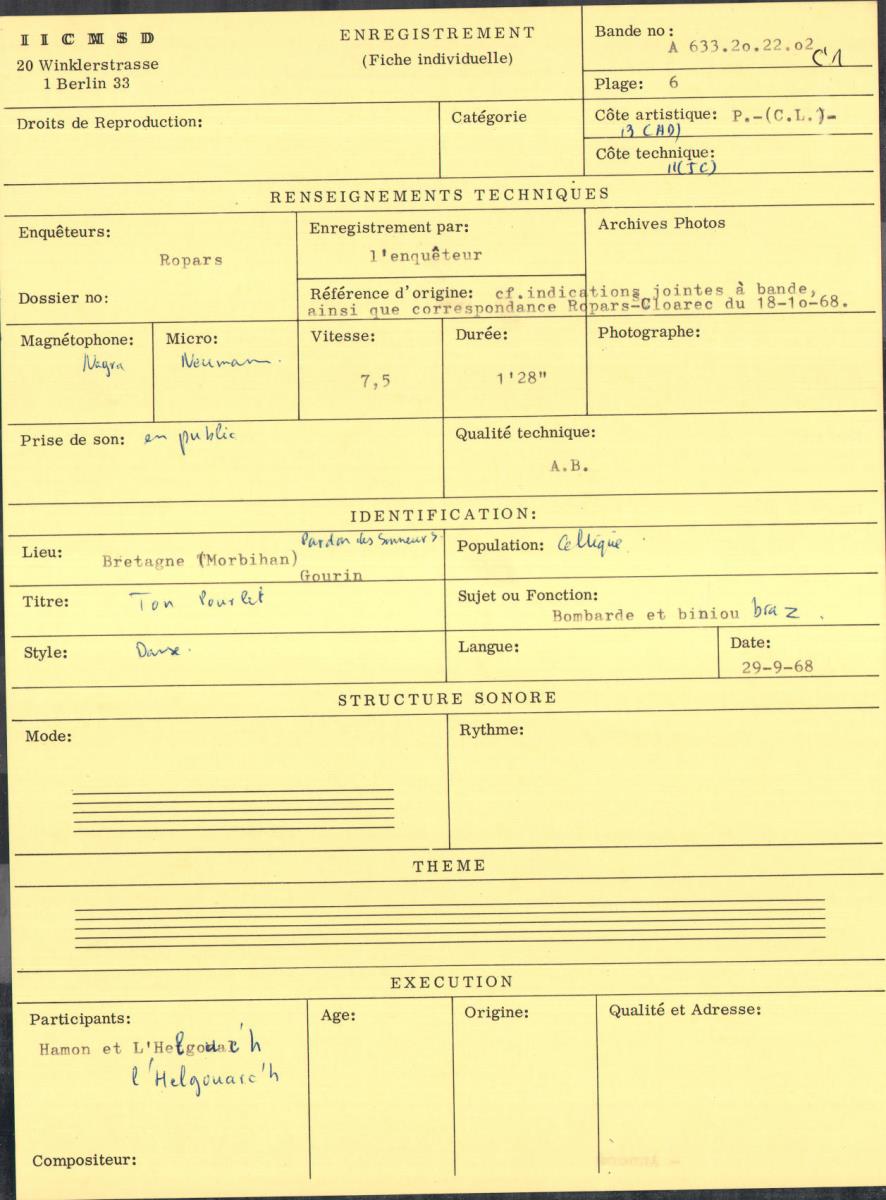 I I C M S D
20 Winklerstrasse
1 Berlin 33
ENREGISTREMENT
(Fiche individuelle)
Bande no:
A 633.2o.22.o2 C1
Plage: 6
Droits de Reproduction:
Catégorie
Côte artistique: P.-(C.L.)-
13 (AD)
Côte technique:
11(JC)
RENSEIGNEMENTS TECHNIQUES
Enquêteurs:
Ropars
Dossier no:
Enregistrement par:
l'enquêteur
Archives Photos
Référence d'origine: cf.indications jointes à bande,
ainsi que correspondance Ropars-Cloarec du 18-1o-68.
Magnétophone:
Nagra
Micro:
Neumann.
Vitesse:
7,5
Durée:
1'28"
Photographe:
Prise de son: en public
Qualité technique:
A.B.
IDENTIFICATION:
Lieu:
Pardon des Sonneurs
Bretagne (Morbihan)
Gourin
Population: Celtique
Titre: Ton Pourlet
Sujet ou Fonction:
Bombarde et biniou braz.
Style: Danse.
Langue:
Date:
29-9-68
STRUCTURE SONORE
Mode:
Rythme:
THEME
EXECUTION
Participants:
Hamon et L'Helgouac'h
l'Helgouarc'h
Age:
Origine:
Qualité et Adresse:
Compositeur: